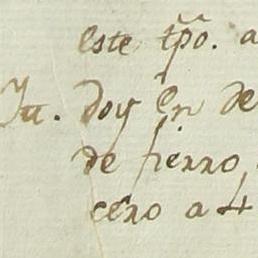 este tpõ. a
Itt. doy en de
de fierro
cero a 4